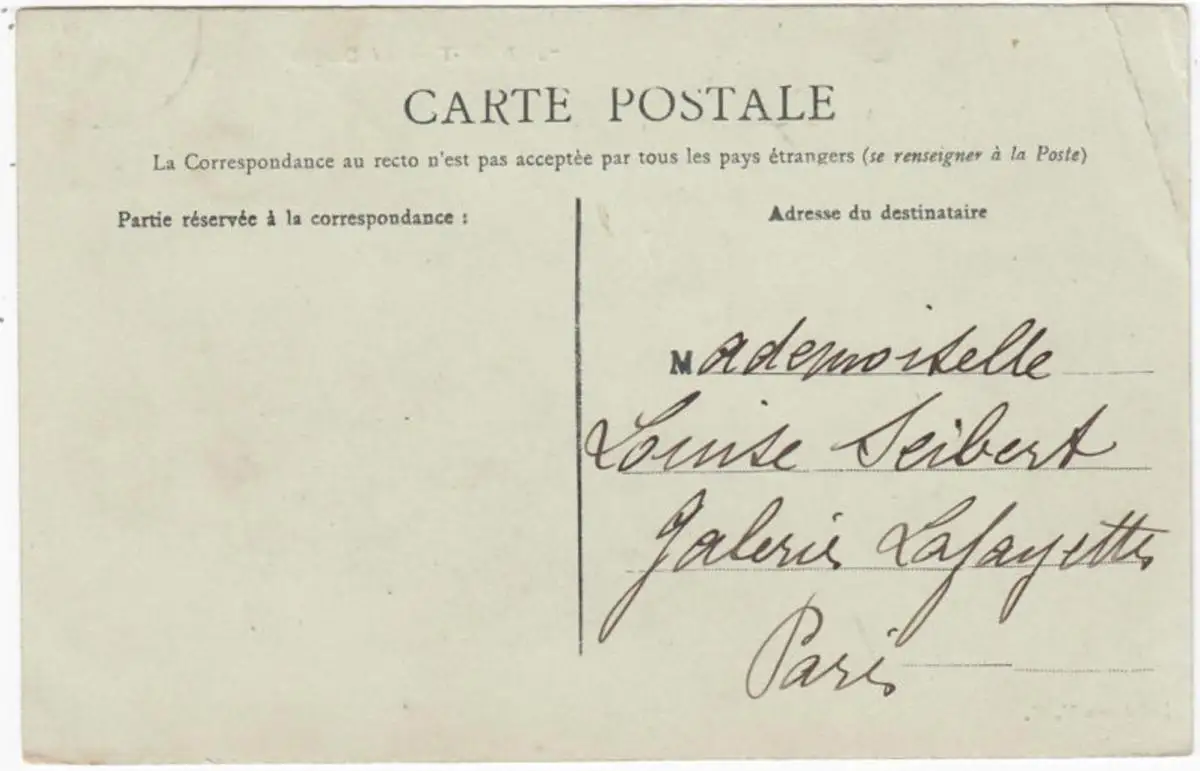 CARTE POSTALE
La Correspondance au recto n'est pas acceptée par tous les pays étrangers (se renseigner à la Poste)
Partie réservée à la correspondance :
Adresse du destinataire
Mademoiselle
Louise Seibert
Galeries Lafayette
Paris